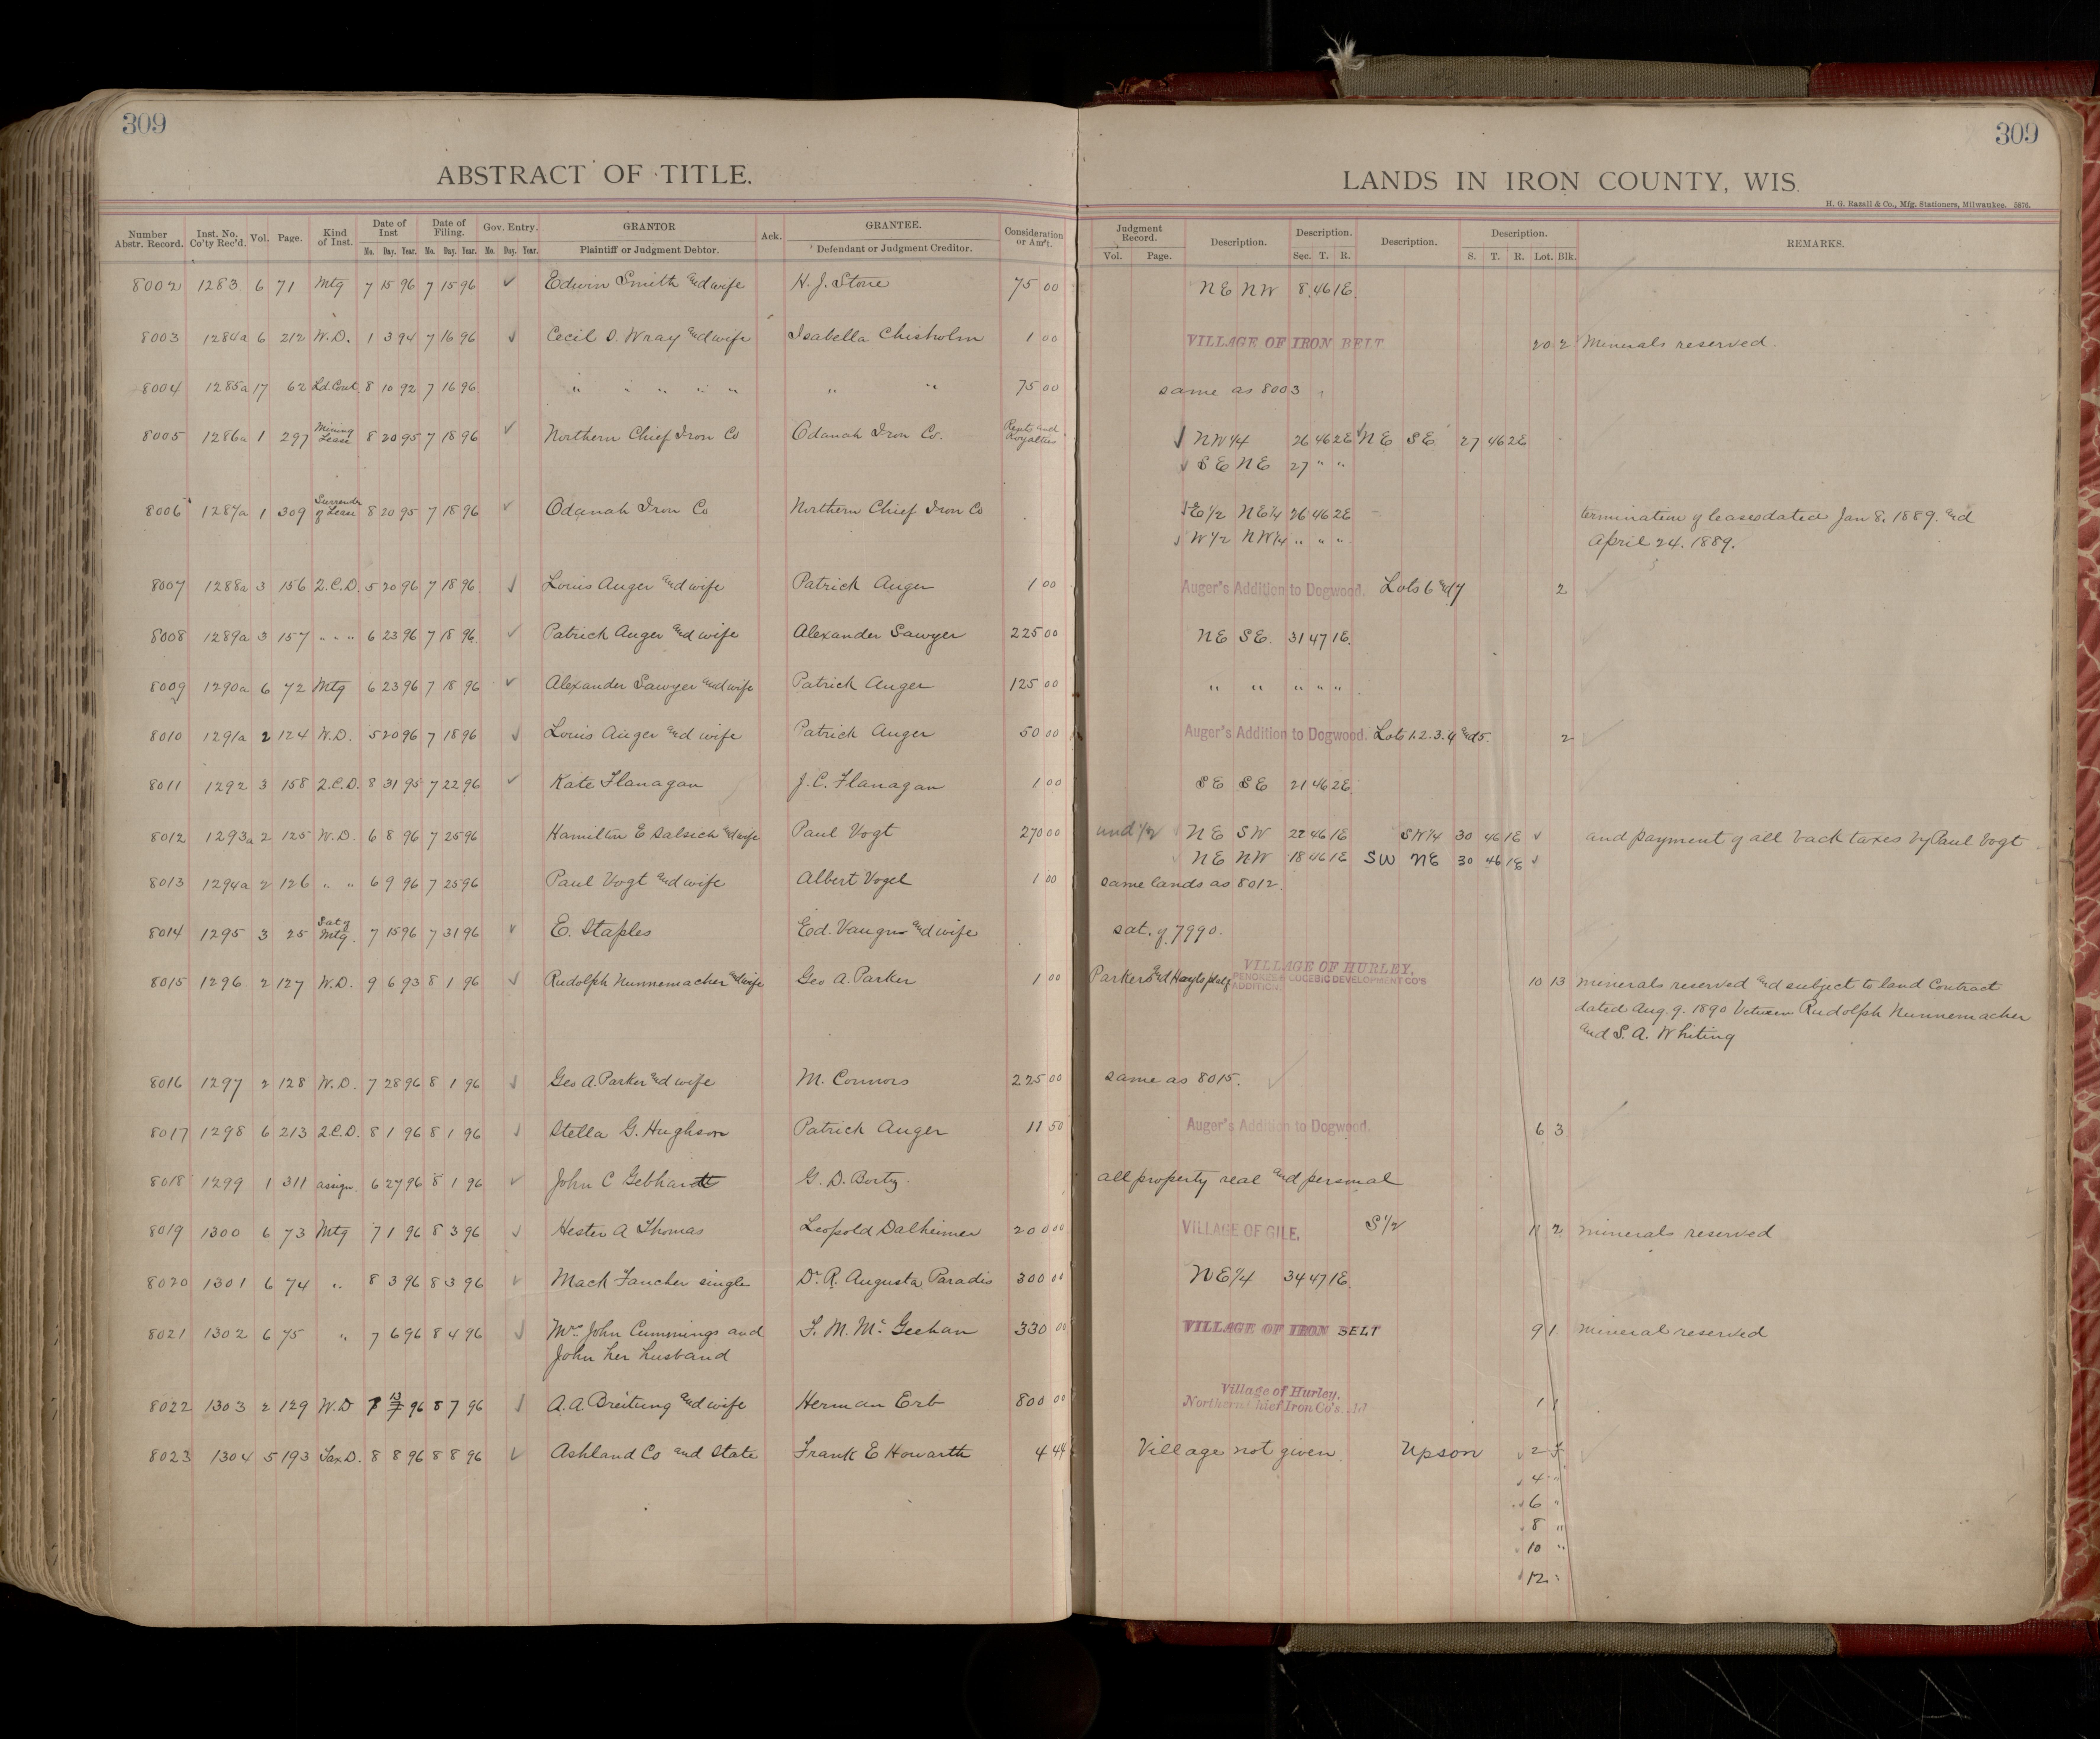 309
309
ABSTRACT OF TITLE.
LANDS IN IRON COUNTY, WIS.
H. G. Razall & Co., Mfg. Stationers, Milwaukee. 5876.
Number Abstr. Record. Inst. No. Co'ty Rec'd. Vol. Page. Kind of Inst. Date of Inst Mo. Day. Year. Date of Filing. Mo. Day. Year. Gov. Entry. Mo. Day. Year. GRANTOR Plaintiff or Judgment Debtor. Ack. GRANTEE. Defendant or Judgment Creditor. Consideration or Am't. Judgment Record. Vol. Page. Description. Description. Sec. T. R. Description. Description. S. T. R. Lot. Blk. REMARKS.
8002 1283 6 71 Mtg 7 15 96 7 15 96 ✓ Edwin Smith and wife H. J. Stone 75 00 NE NW 8 46 1E
8003 1284a 6 212 W.D. 1 3 94 7 16 96 ✓ Cecil D. Wray and wife Isabella Chisholm 1 00 VILLAGE OF IRON BELT 20 2 Minerals reserved.
8004 1285a 17 62 Ld. Cont. 8 10 92 7 16 96 " " " " " " " 75 00 same as 8003
8005 1286a 1 297 Mining Lease 8 20 95 7 18 96 ✓ Northern Chief Iron Co Odanah Iron Co. Rents and Royalties ✓ NW1/4 26 46 2E ✓ NE SE 27 46 2E
✓ SE NE 27 " "
8006 1287a 1 309 Surrender of Lease 8 20 95 7 18 96 ✓ Odanah Iron Co Northern Chief Iron Co ✓ E1/2 NE1/4 26 46 2E termination of leases dated Jan 8. 1889. and
✓ W1/2 NW1/4 " " " April 24. 1889.
8007 1288a 3 156 Q.C.D. 5 20 96 7 18 96 ✓ Louis Auger and wife Patrick Auger 1 00 Auger's Addition to Dogwood. Lots 6 and 7 2
8008 1289a 3 157 " " " 6 23 96 7 18 96 ✓ Patrick Auger and wife Alexander Sawyer 225 00 NE SE. 31 47 1E.
8009 1290a 6 72 Mtg 6 23 96 7 18 96 ✓ Alexander Sawyer and wife Patrick Auger 125 00 " " " " "
8010 1291a 2 124 W.D. 5 20 96 7 18 96 ✓ Louis Auger and wife Patrick Auger 50 00 Auger's Addition to Dogwood. Lots 1.2.3.4 and 5. 2
8011 1292 3 158 Q.C.D. 8 31 95 7 22 96 ✓ Kate Flanagan J. C. Flanagan 1 00 SE SE 21 46 2E
8012 1293a 2 125 W.D. 6 8 96 7 25 96 Hamilton E Salsich and wife Paul Vogt 270 00 und 1/2 NE SW 22 46 1E SW1/4 30 46 1E ✓ and payment of all back taxes by Paul Vogt
✓ NE NW 18 46 1E SW NE 30 46 1E ✓
8013 1294a 2 126 " " 6 9 96 7 25 96 Paul Vogt and wife Albert Vogel 1 00 same lands as 8012.
8014 1295 3 25 Sat of Mtg. 7 15 96 7 31 96 ✓ E. Staples Ed. Vaugn and wife sat. of 7990.
8015 1296 2 127 W.D. 9 6 93 8 1 96 ✓ Rudolph Nunnemacher and wife Geo A. Parker 1 00 Parker and VILLAGE OF HURLEY, DEVELOPMENT CO'S ADDITION. 10 13 minerals reserved and subject to land Contract
dated Aug. 9. 1890 between Rudolph Nunnemacher
and S. A. Whiting
8016 1297 2 128 W.D. 7 28 96 8 1 96 ✓ Geo A. Parker and wife M. Connors 225 00 same as 8015. ✓
8017 1298 6 213 Q.C.D. 8 1 96 8 1 96 ✓ Stella G. Hughson Patrick Auger 11 50 Auger's Addition to Dogwood. 6 3
8018 1299 1 311 assign. 6 27 96 8 1 96 ✓ John C Gebhardt G. D. all property real and personal
8019 1300 6 73 Mtg 7 1 96 8 3 96 ✓ Hester A Thomas Leopold Dalheimer 200 00 VILLAGE OF GILE, S1/2 11 2 minerals reserved
8020 1301 6 74 " 8 3 96 8 3 96 ✓ Mack Fancher single Dr. R. Augusta Paradis 300 00 NE1/4 34 47 1E.
8021 1302 6 75 " 7 6 96 8 4 96 ✓ Mrs John Cummings and F. M. McGeehan 330 00 VILLAGE OF IRON BELT 9 1 mineral reserved
John her husband
8022 1303 2 129 W.D 7 13 96 8 7 96 ✓ A. A. Breitung and wife Herman Erb 800 00 Village of Hurley. Northern Chief Iron Co's. 1 1
8023 1304 5 193 Tax D. 8 8 96 8 8 96 ✓ Ashland Co and State Frank E Howarth 4 44 Village not given Upson ✓ 2
✓ 4 "
✓ 6 "
✓ 8 "
10 "
✓ 12 "